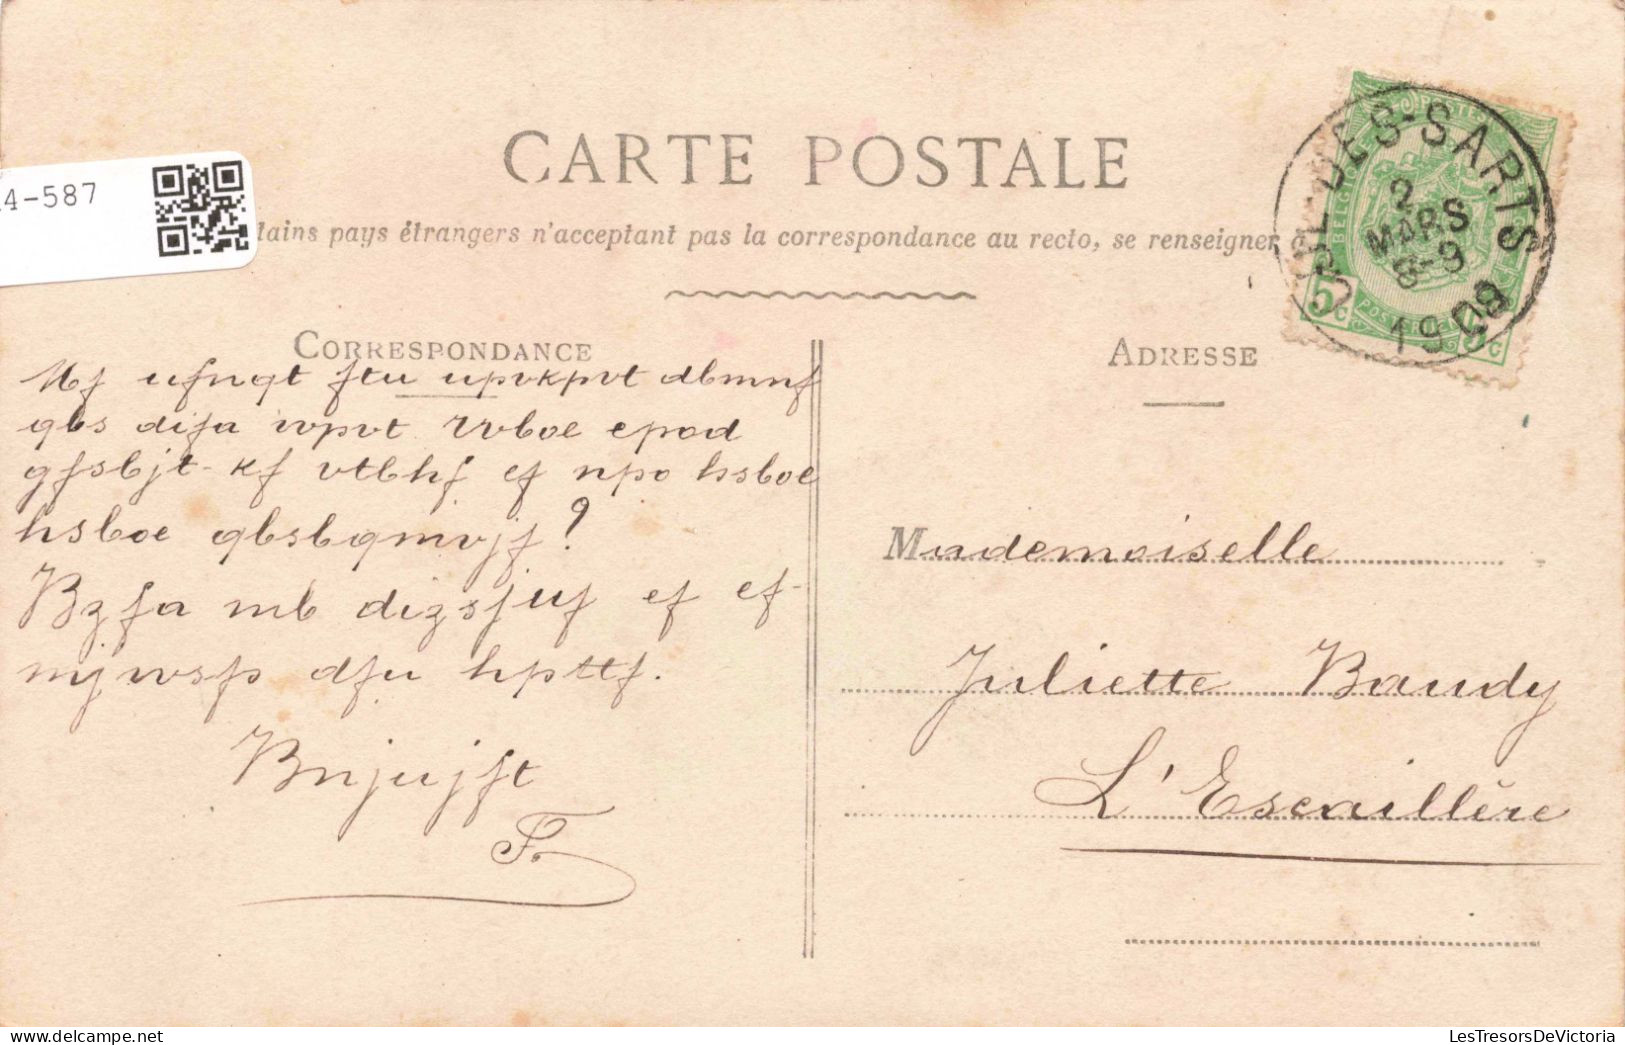 4-587
CARTE POSTALE
tains pays étrangers n'acceptant pas la correspondance au recto, se renseigner
DES-SARTS
2
MARS
8-9
1909
BELGIQUE
POSTES
5c
5c
CORRESPONDANCE
ADRESSE
Mf ufnqt ftu upvkpvt dbmnf
qbs difa wpvt Rvboe epod
gfsbjt-kf vtbhf ef npo hsboe
hsboe qbsbqmvjf?
Bzfa mb dizsjuf ef ef-
mjwsfs dfu hpttf.
Bnjujft
F.
Mademoiselle
Juliette Baudy
L'Escaillère
LesTresorsDeVictoria